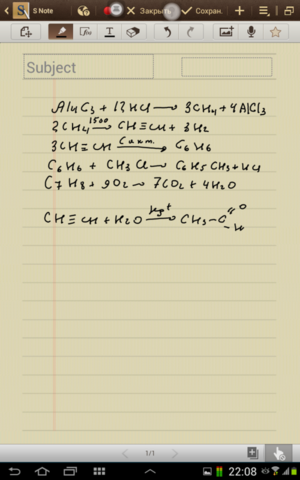 S Note
Закрыть
Сохран.
Subject
Al4C3 + 12HCl → 3CH4 + 4AlCl3
2CH4 1500→ CH≡CH + 3H2
3CH≡CH C акт.→ C6H6
C6H6 + CH3Cl → C6H5CH3 + HCl
C7H8 + 9O2 → 7CO2 + 4H2O
CH≡CH + H2O Hg+→ CH3-C =O -H
1/1
22:08